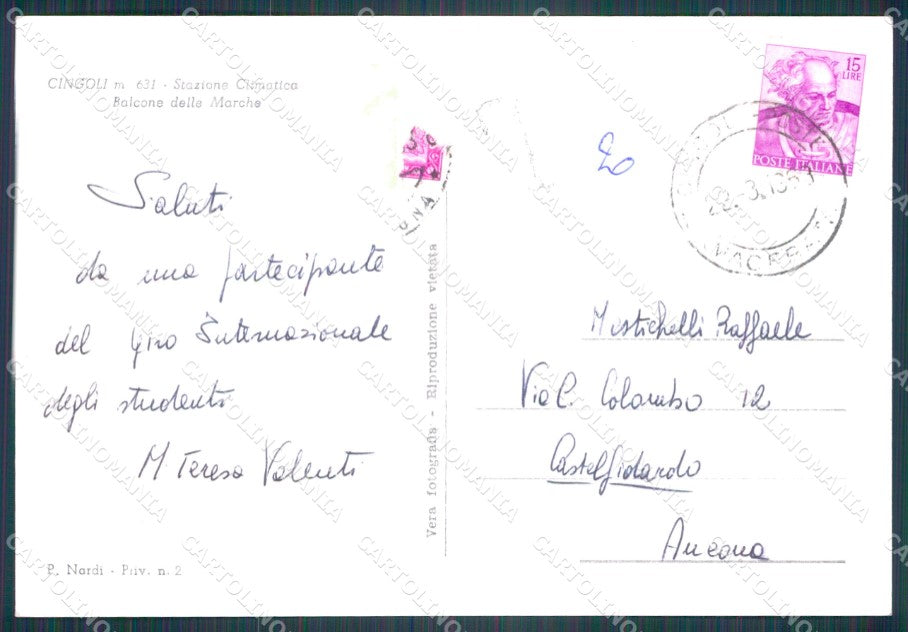 CINGOLI m. 631 - Stazione Climatica
Balcone delle Marche
Saluti
da una partecipante
del giro Internazionale
degli studenti
M Teresa Valenti
P. Nardi - Priv. n. 2
Vera fotografia - Riproduzione vietata
20
15
LIRE
POSTE ITALIANE
MACERATA
Mostichelli Raffaele
Via C. Colombo 12
Castelfidardo
Ancona
CARTOLINOMANIA